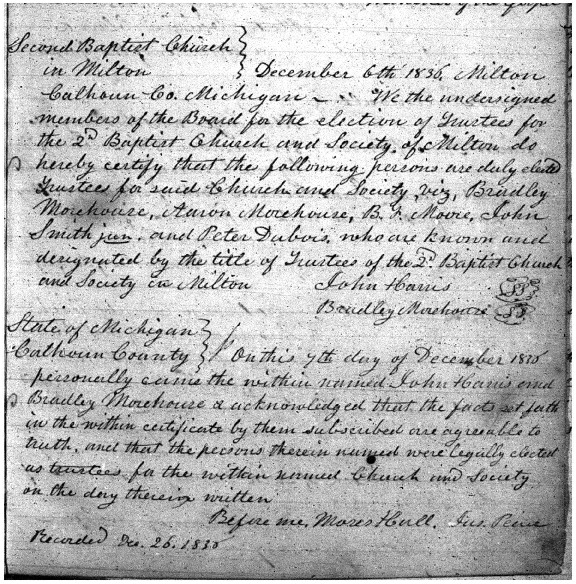 Second Baptist Church
in Milton } December 6th 1836, Milton
Calhoun Co. Michigan – We the undersigned
members of the Board for the election of Trustees for
the 2d Baptist Church and Society of Milton do
hereby certify that the following persons are duly elected
Trustees for said Church and Society, viz, Bradley
Morehouse, Aaron Morehouse, B. F. Moore, John
Smith jun. and Peter Dubois, who are known and
designated by the title of Trustees of the 2d Baptist Church
and Society in Milton John Harris
Bradley Morehouse
State of Michigan
Calhoun County } On this 7th day of December 1836
personally came the within named John Harris and
Bradley Morehouse & acknowledged that the facts set forth
in the within certificate by them subscribed are agreeable to
truth, and that the persons therein named were legally elected
as trustees for the within named Church and Society
on the day therein written
Before me, Moses Hall, Jus. Peace
Recorded Dec. 26. 1836